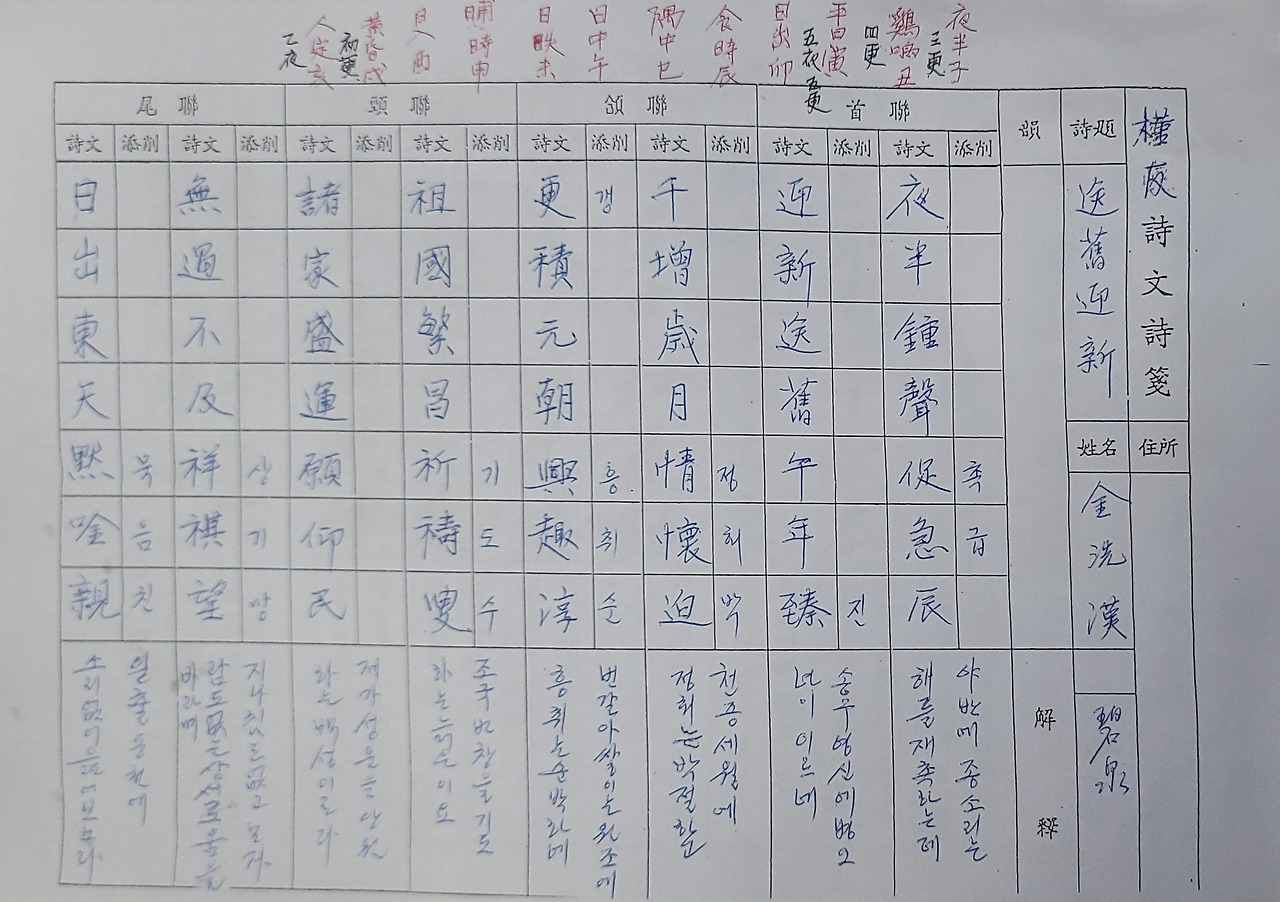 夜半子
三更
鷄鳴丑
四更
平旦寅
五夜五更
日出卯
食時辰
隅中巳
日中午
日昳未
晡時申
日入酉
黃昏戌
初更
人定亥
乙夜
槿 詩文詩箋
住所
詩題
送舊迎新
姓名
金洗漢
碧泉
韻
解釋
首聯
添削
詩文
夜半鍾聲促急辰
촉급
야반에 종소리는
해를 재촉하는데
添削
詩文
迎新送舊午年臻
진
송구영신에 병오
년이 이르네
頷聯
添削
詩文
千增歲月情懷迫
정회박
천증세월에
정회는 박절한
添削
詩文
更積元朝興趣淳
갱흥취순
번갈아 쌓이는 원조에
흥취는 순박하네
頭聯
添削
詩文
祖國繁昌祈禱叟
기도수
조국번창을 기도
하는 늙은이요
添削
詩文
諸家盛運願仰民
제가성운을 앙원
하는 백성이로다
尾聯
添削
詩文
無過不及祥祺望
상기망
지나침도 없고 모자
람도 없는 상서로움을
바라며
添削
詩文
日出東天默唫親
묵음친
일출동천에
소리없이 읊어보노라